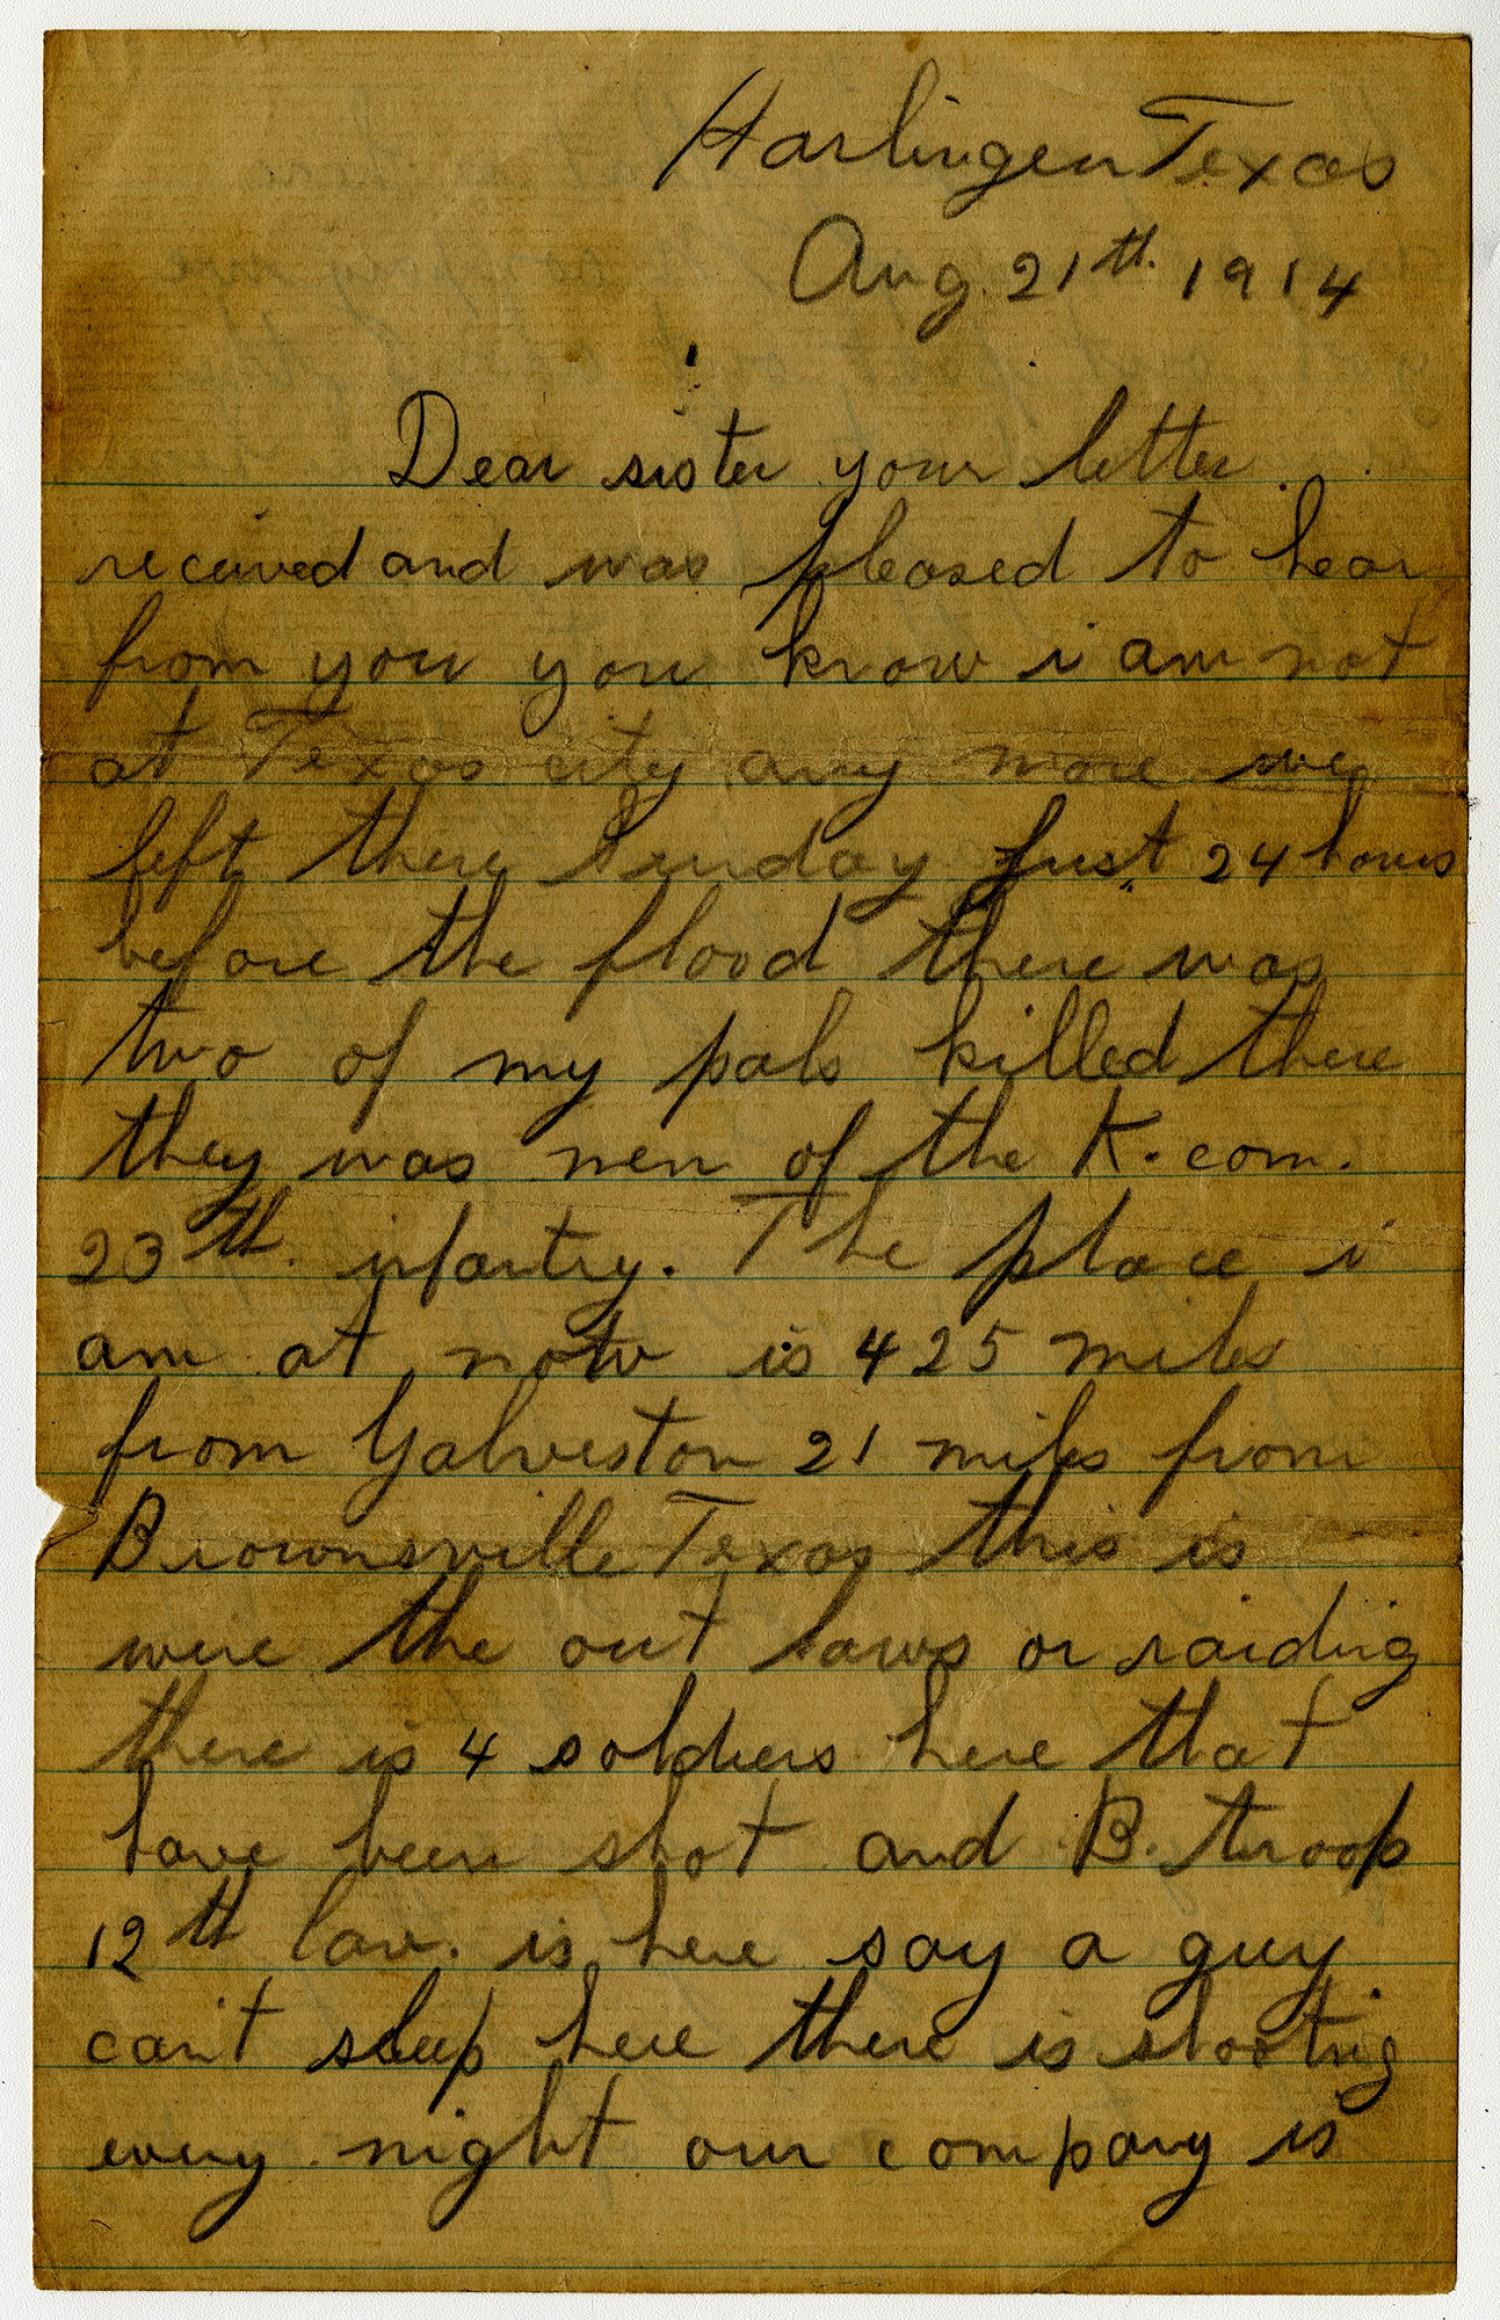 Harlingen Texas
Aug. 21th. 1914
Dear sister your letter
received and was pleased to hear
from you you know i am not
at Texas city any more we
left there Sunday just 24 hours
before the flood there was
two of my pals killed there
they was men of the K. com.
23th. infantry. The place i
am at now is 425 miles
from Galveston 21 miles from
Brownsville Texas this is
were the out laws or raiding
there is 4 soldiers here that
have been shot and B. troop
12th Cav. is here say a guy
can't sleep here there is shooting
every night our company is